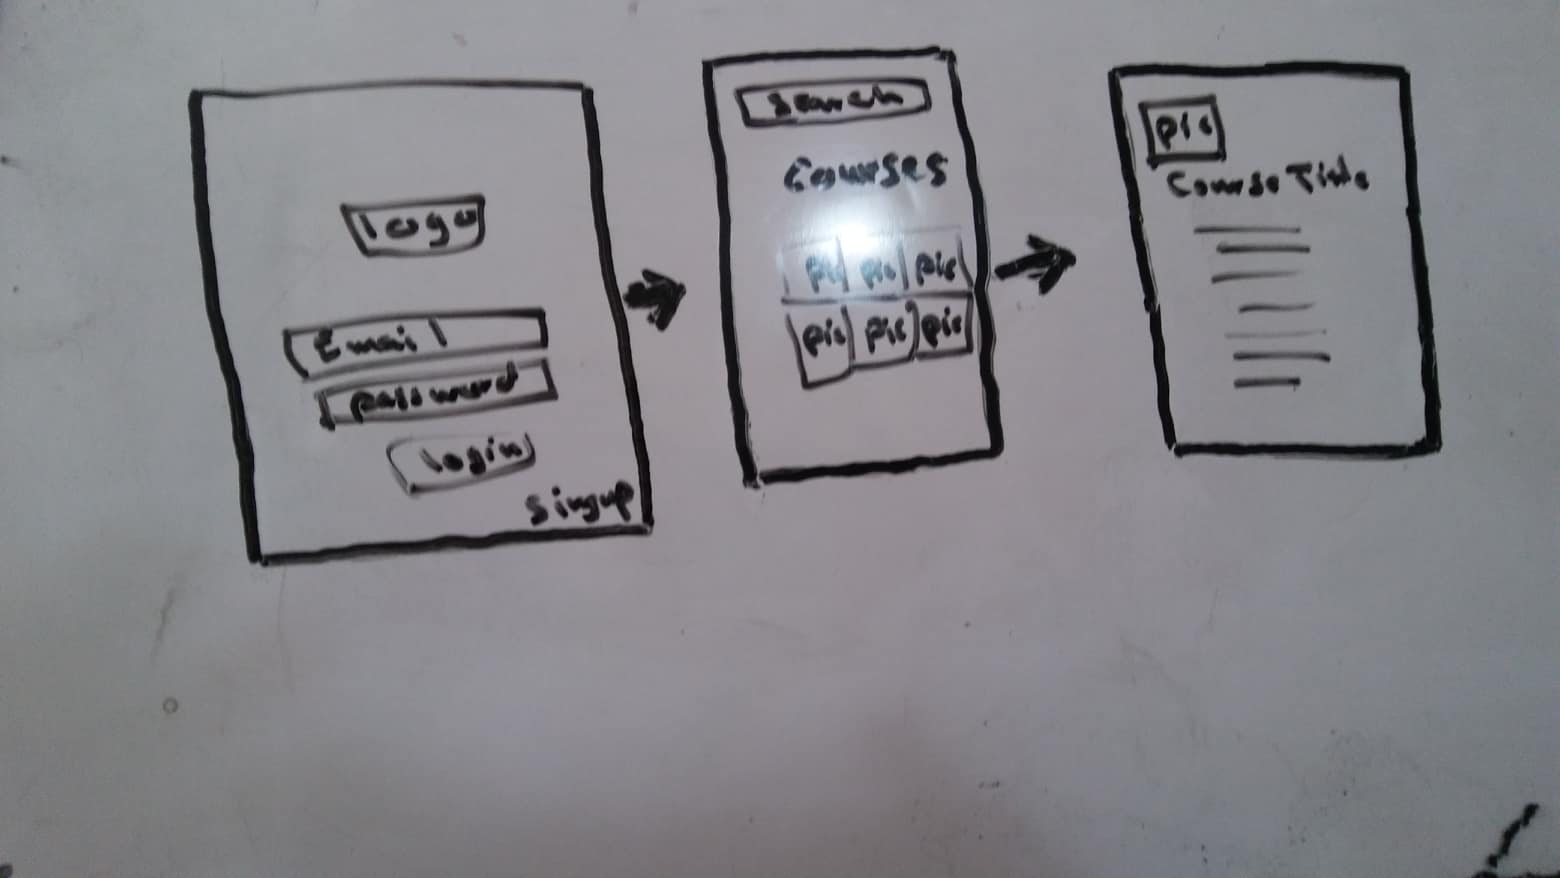 logo
Email
password
login
singup
search
Courses
pic pic pic
pic pic pic
pic
Course Title